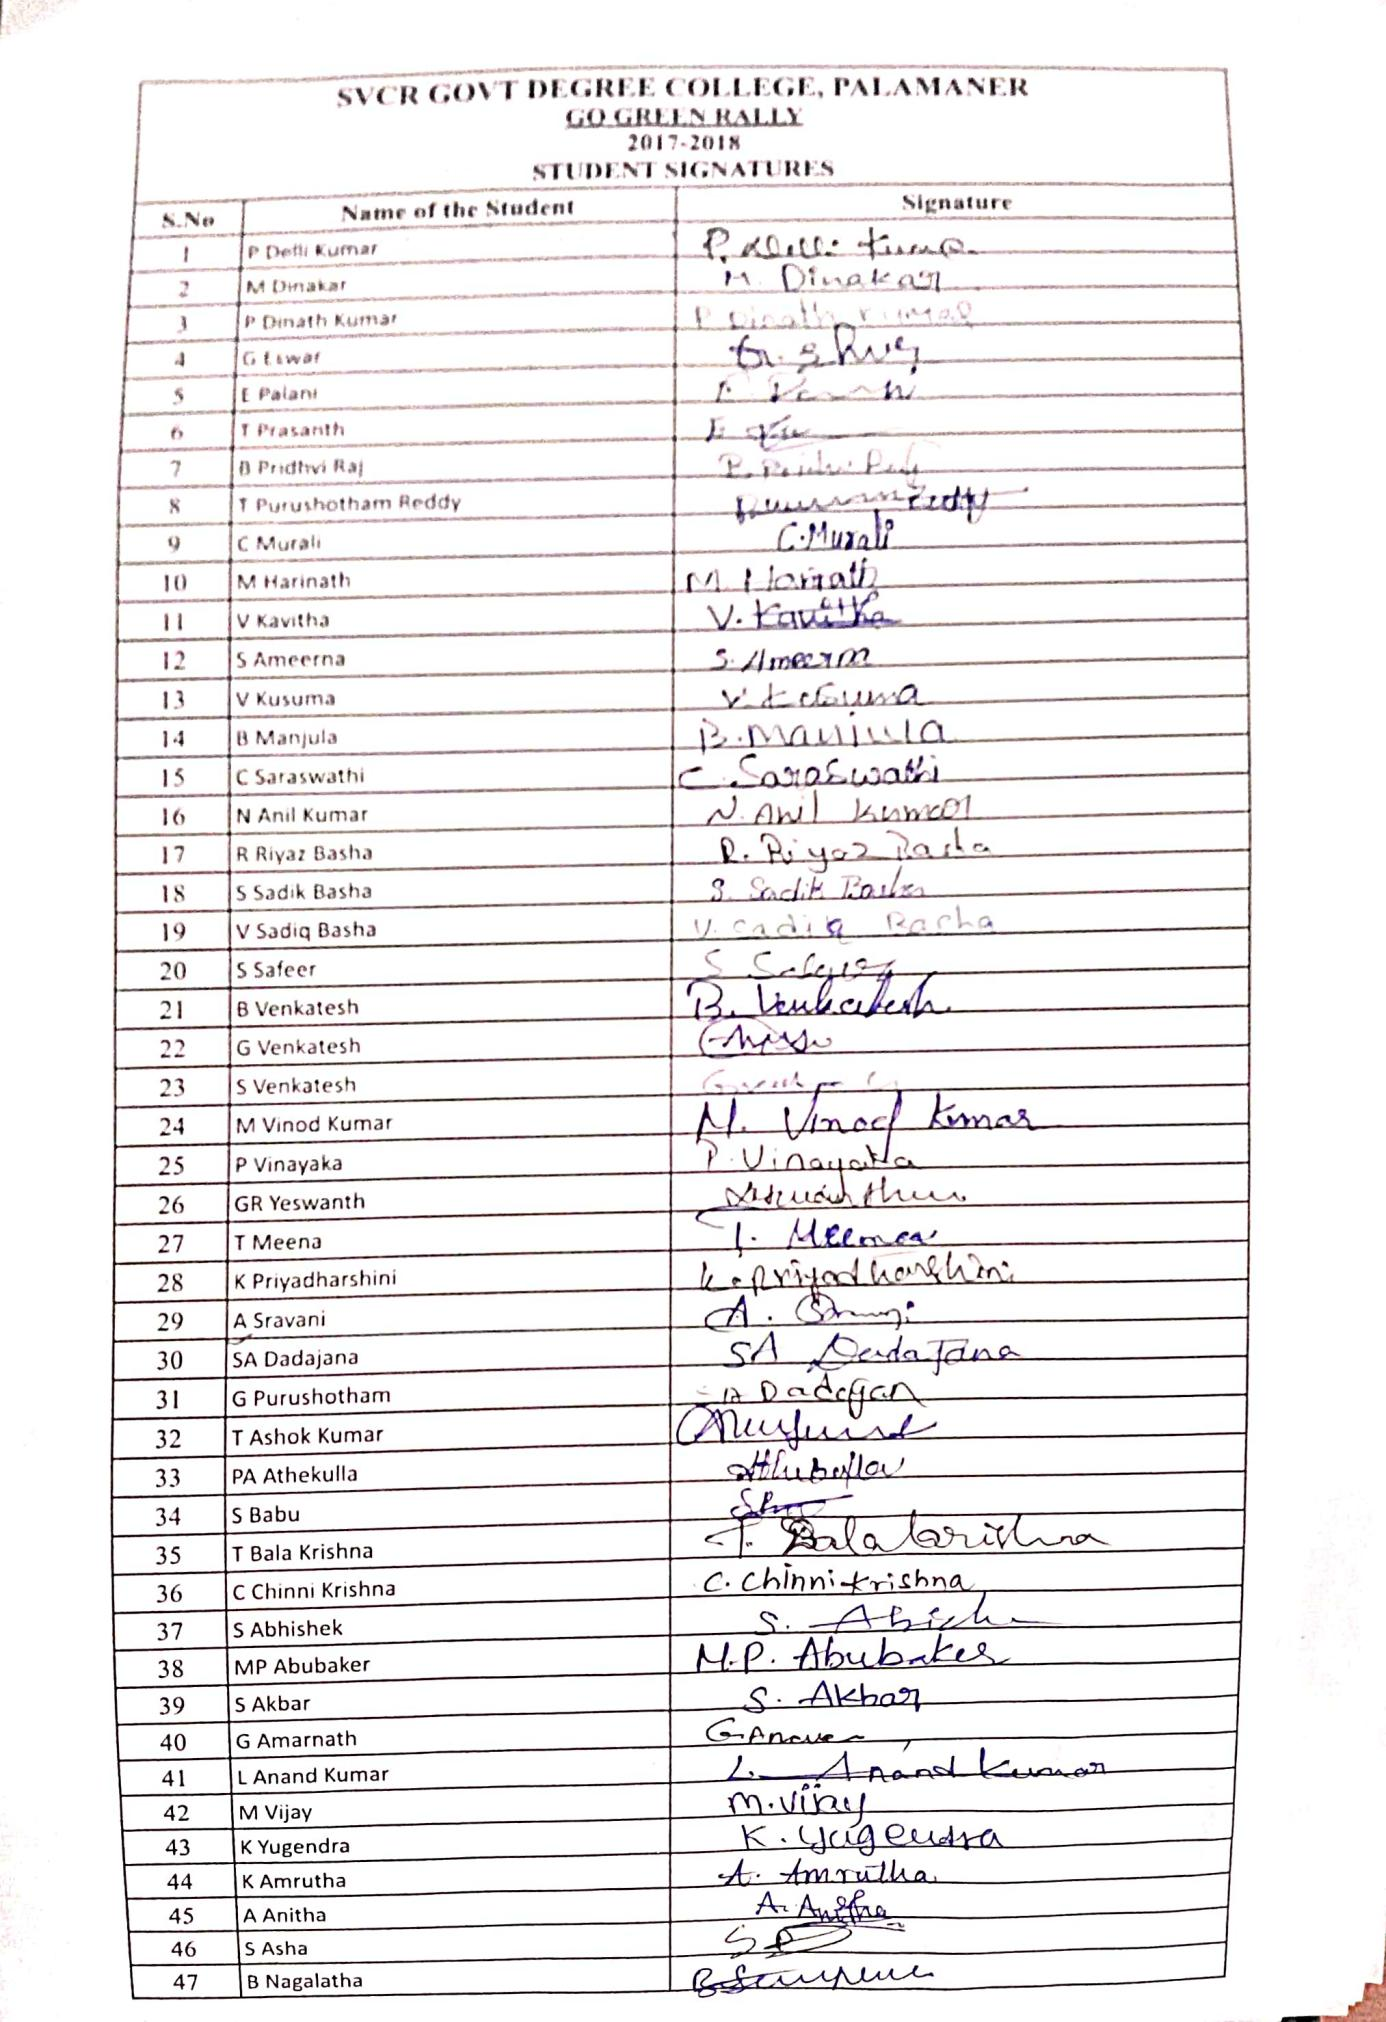 SVCR GOVT DEGREE COLLEGE, PALAMANER
GO GREEN RALLY
2017-2018
STUDENT SIGNATURES
S.No Name of the Student Signature
1 P Delli Kumar P. Delli Kumar
2 M Dinakar M. Dinakar
3 P Dinath Kumar P Dinath Kumar
4 G Eswar
5 E Palani
6 T Prasanth
7 B Pridhvi Raj B. Pridhvi Raj
8 T Purushotham Reddy Reddy
9 C Murali C.Murali
10 M Harinath M. Harinath
11 V Kavitha V. Kavitha
12 S Ameerna S. Ameerna
13 V Kusuma V. Kusuma
14 B Manjula B. Manjula
15 C Saraswathi C. Saraswathi
16 N Anil Kumar N. Anil Kumar
17 R Riyaz Basha R. Riyaz Basha
18 S Sadik Basha S. Sadik Basha
19 V Sadiq Basha V. Sadiq Basha
20 S Safeer S
21 B Venkatesh B. Venkatesh
22 G Venkatesh
23 S Venkatesh
24 M Vinod Kumar M. Vinod Kumar
25 P Vinayaka P. Vinayaka
26 GR Yeswanth
27 T Meena T. Meena
28 K Priyadharshini K. Priyadharshini
29 A Sravani A.
30 SA Dadajana SA Dada Jana
31 G Purushotham
32 T Ashok Kumar
33 PA Athekulla
34 S Babu
35 T Bala Krishna T. Bala krishna
36 C Chinni Krishna C. Chinni Krishna
37 S Abhishek S.
38 MP Abubaker M.P. Abubaker
39 S Akbar S. Akbar
40 G Amarnath
41 L Anand Kumar L. Anand Kumar
42 M Vijay M. Vijay
43 K Yugendra K. Yugendra
44 K Amrutha A. Amrutha
45 A Anitha A. Anitha
46 S Asha
47 B Nagalatha